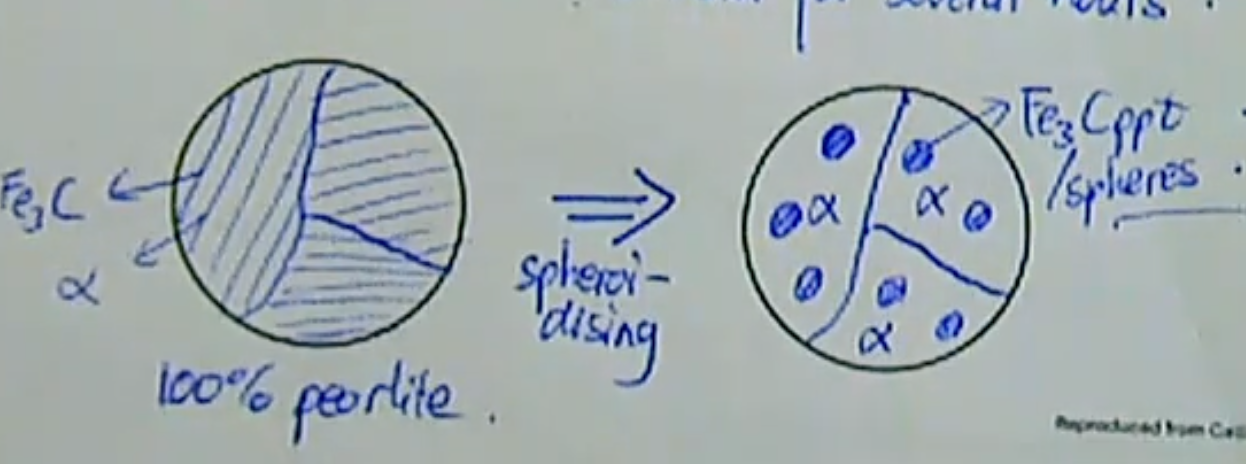 for several hours.
Fe₃C
α
100% pearlite.
spheroi-
dising
α
α
α
Fe₃C ppt
/spheres
Reproduced from